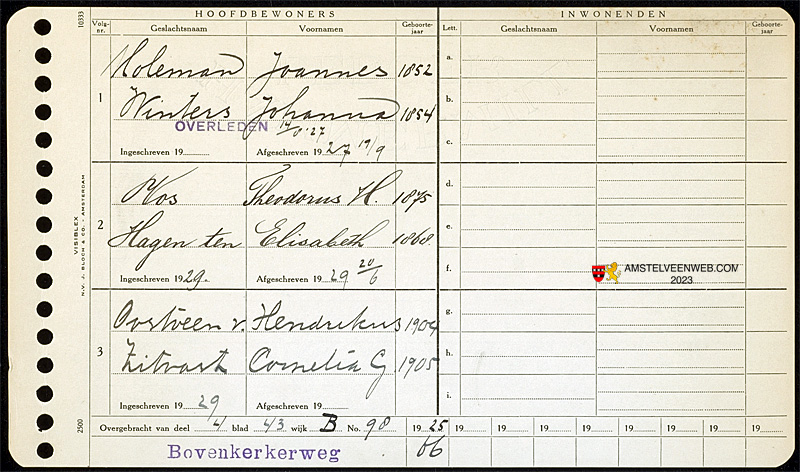 HOOFDBEWONERS
INWONENDEN
Volg-nr.
Geslachtsnaam
Voornamen
Geboorte-jaar
Lett.
Geslachtsnaam
Voornamen
Geboorte-jaar
10333
1
Holeman Joannes 1852
Winters Johanna 1854
OVERLEDEN
Ingeschreven 19
Afgeschreven 1927 19/9
2
Kos Theodorus H. 1875
Hagen ten Elisabeth 1868
Ingeschreven 1929.
Afgeschreven 1929 20/6
3
Oostveen v. Hendrikus 1904
Zitvast Cornelia G. 1905
Ingeschreven 1929
Afgeschreven 19
a.
b.
c.
d.
e.
f.
g.
h.
i.
AMSTELVEENWEB.COM
2023
VISIBLEX
N.V. J. BLOCH & CO. - AMSTERDAM
2500
Overgebracht van deel 4 blad 43 wijk B No. 98 1925 19 19 19 19 19 19 19
Bovenkerkerweg 66